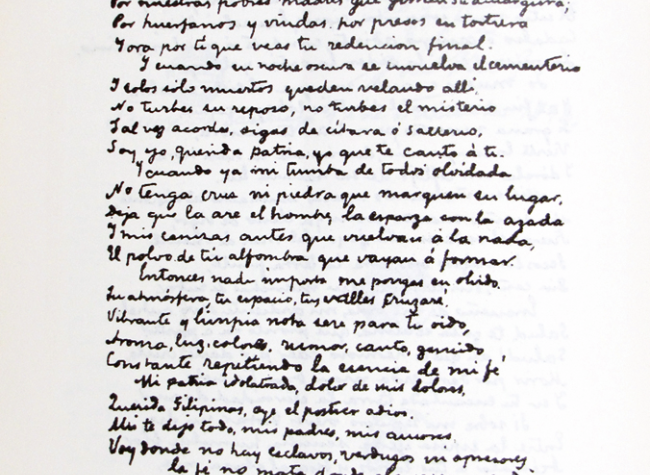 Por nuestras pobres madres que gimen su amargura;
Por huerfanos y viudas, por presos en tortura
Y ora por ti que veas tu redencion final.
Y cuando en noche oscura se envuelva el cementerio
Y solos sólo muertos queden velando alli,
No turbes su reposo, no turbes el misterio
Tal vez acordes oigas de citara ó salterio,
Soy yo, querida patria, yo que te canto á ti.
Y cuando ya mi tumba de todos olvidada
No tenga cruz ni piedra que marquen su lugar,
Deja que la are el hombre, la esparza con la azada
Y mis cenizas antes que vuelvan á la nada,
El polvo de tu alfombra que vayan á formar.
Entonces nada importa me pongas en olvido.
Tu atmósfera, tu espacio, tus valles cruzaré.
Vibrante y limpia nota seré para tu oido,
Aroma, luz, colores, rumor, canto, gemido,
Constante repitiendo la esencia de mi fé
Mi patria idolatrada, dolor de mis dolores
Querida Filipinas, oye el postrer adios.
Ahi te dejo todo, mis padres, mis amores
Voy donde no hay esclavos, verdugos ni opresores
la fé no mata